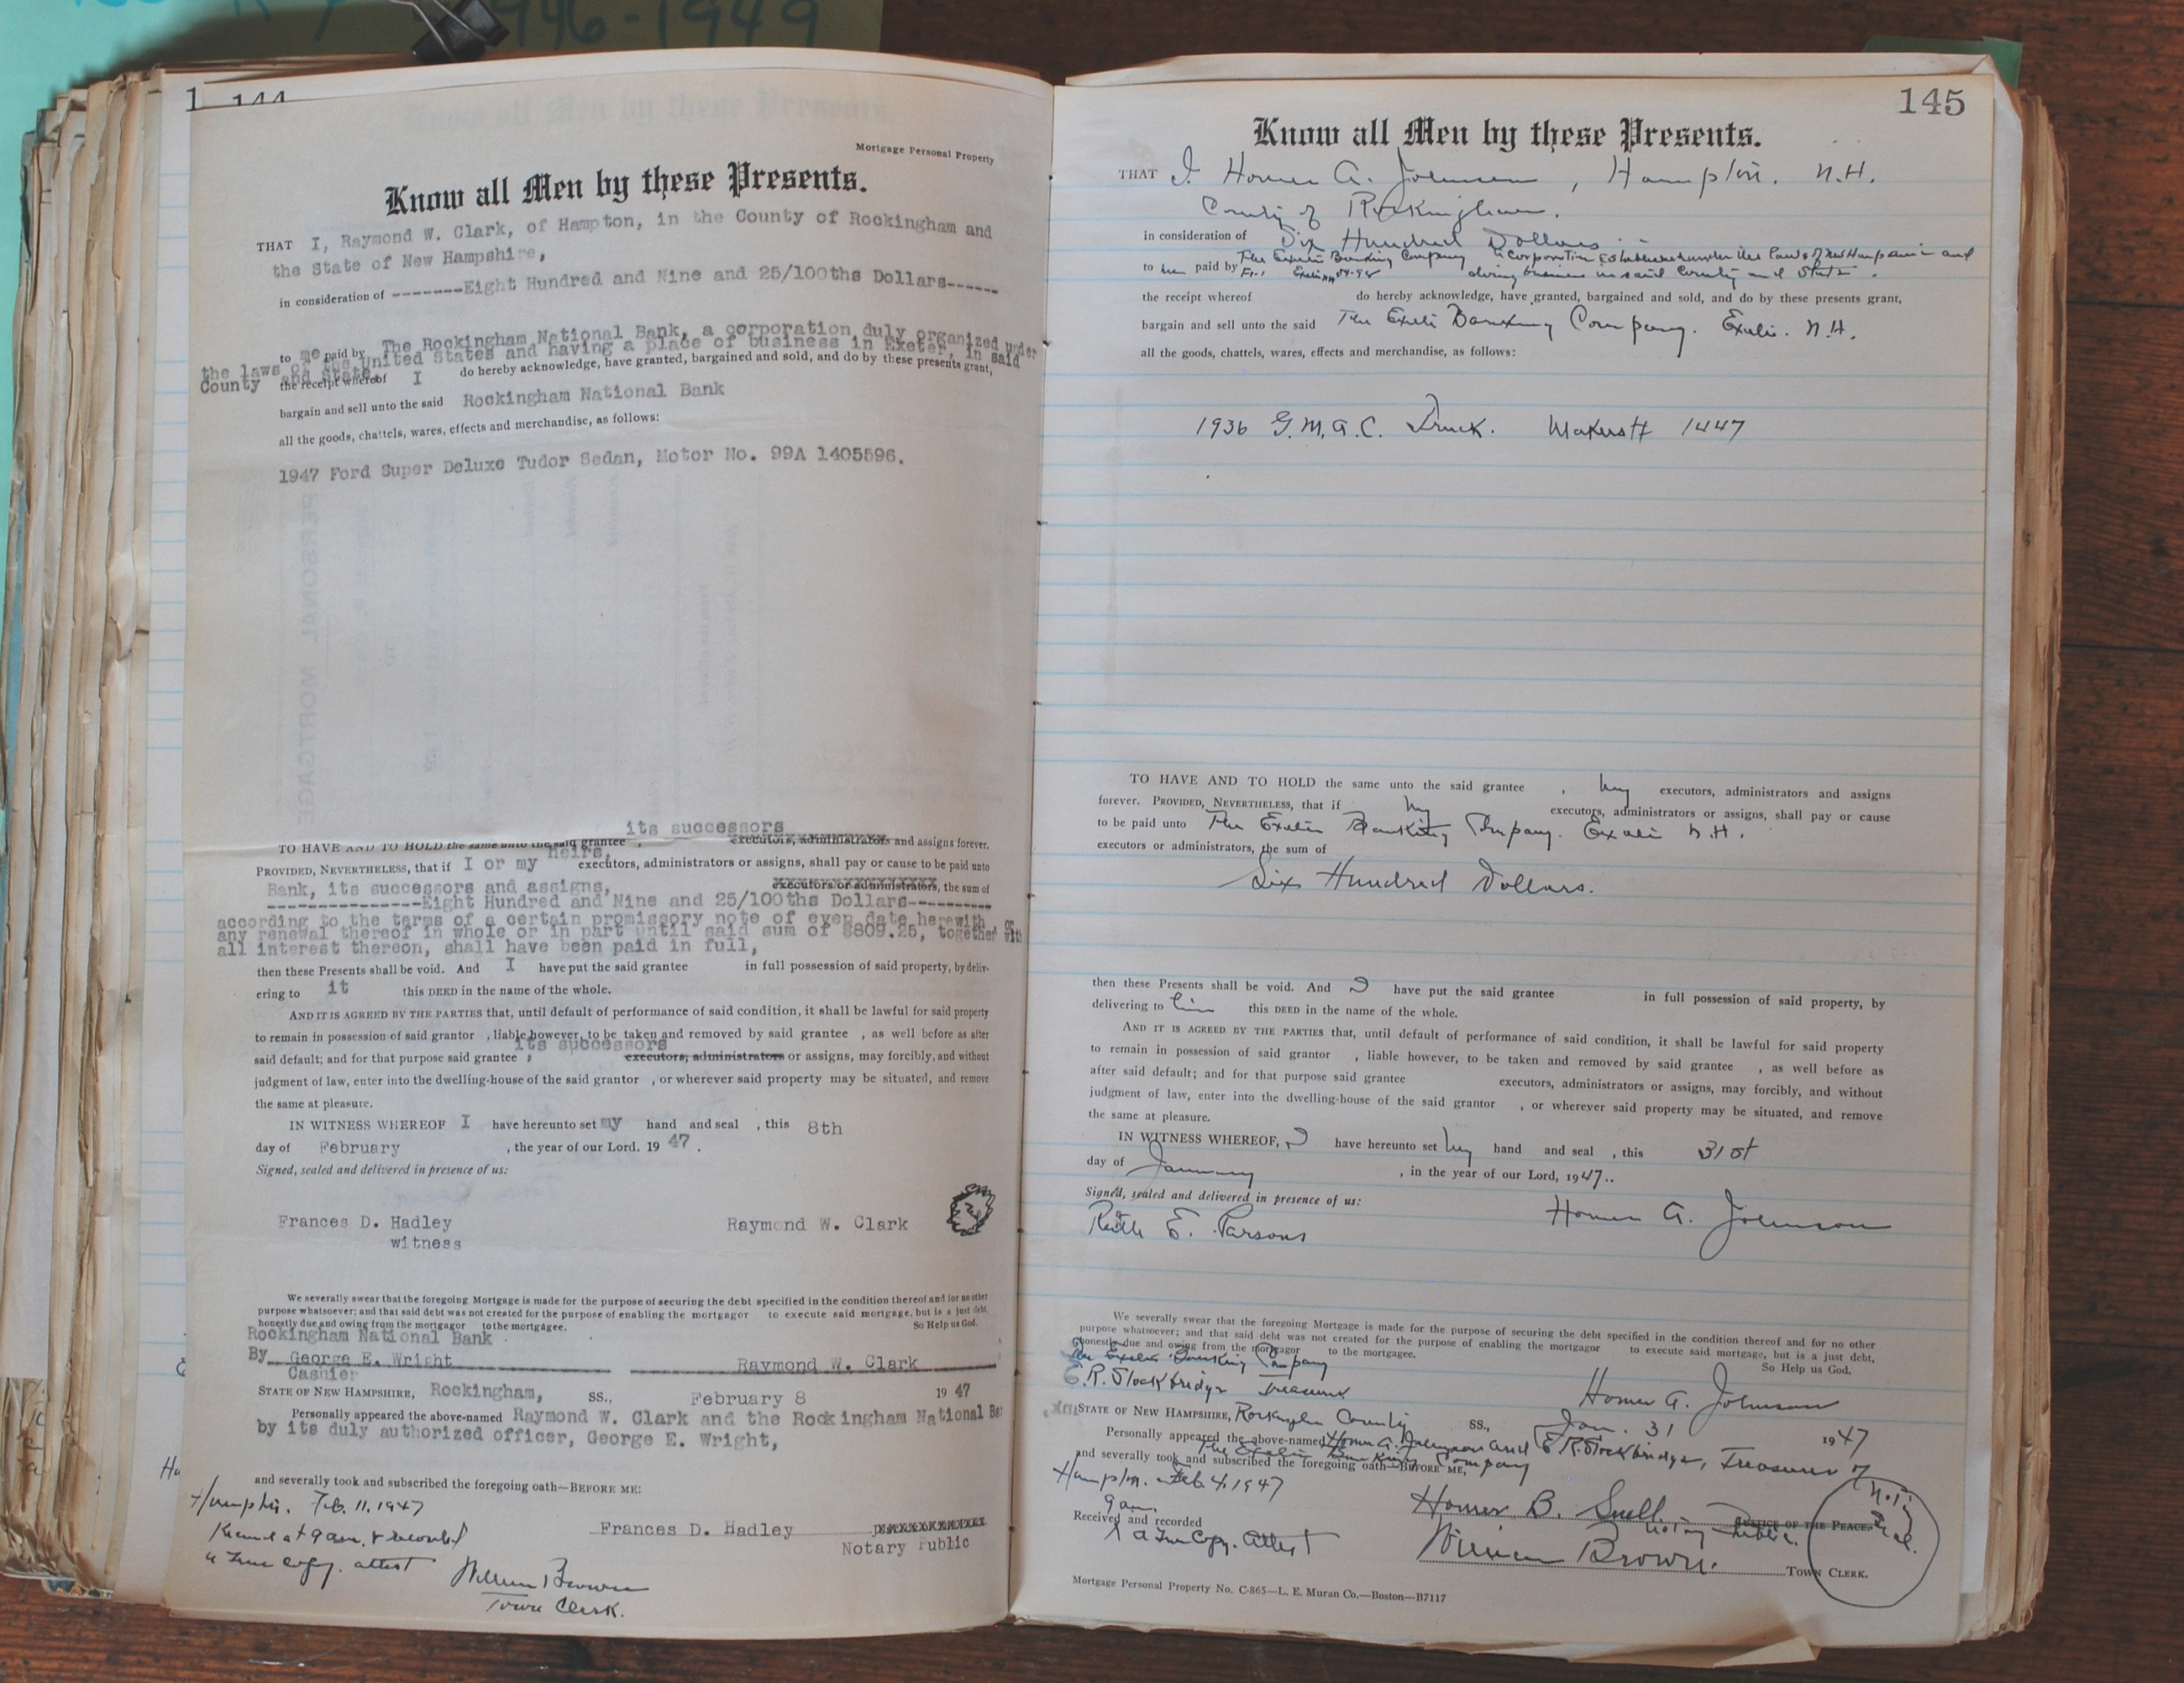 1946-1949
1 144
Mortgage Personal Property
Know all Men by these Presents.
THAT I, Raymond W. Clark, of Hampton, in the County of Rockingham and
the State of New Hampshire,
in consideration of --------Eight Hundred and Nine and 25/100ths Dollars------
to me paid by The Rockingham National Bank, a corporation duly organized under
the laws of the United States and having a place of business in Exeter, in said
County and State,
the receipt whereof I do hereby acknowledge, have granted, bargained and sold, and do by these presents grant,
bargain and sell unto the said Rockingham National Bank
all the goods, chattels, wares, effects and merchandise, as follows:
1947 Ford Super Deluxe Tudor Sedan, Motor No. 99A 1405596.
its successors
TO HAVE AND TO HOLD the same unto the said grantee , executors, administrators and assigns forever.
PROVIDED, NEVERTHELESS, that if I or my heirs, executors, administrators or assigns, shall pay or cause to be paid unto
Bank, its successors and assigns, executors or administrators, the sum of
---------------Eight Hundred and Nine and 25/100ths Dollars----------
according to the terms of a certain promissory note of even date herewith or
any renewal thereof in whole or in part until said sum of $809.25, together with
all interest thereon, shall have been paid in full,
then these Presents shall be void. And I have put the said grantee in full possession of said property, by deliv-
ering to it this DEED in the name of the whole.
AND IT IS AGREED BY THE PARTIES that, until default of performance of said condition, it shall be lawful for said property
to remain in possession of said grantor , liable however, to be taken and removed by said grantee , as well before as after
its successors
said default; and for that purpose said grantee , executors, administrators or assigns, may forcibly, and without
judgment of law, enter into the dwelling-house of the said grantor , or wherever said property may be situated, and remove
the same at pleasure.
IN WITNESS WHEREOF I have hereunto set my hand and seal , this 8th
day of February , the year of our Lord. 19 47 .
Signed, sealed and delivered in presence of us:
Frances D. Hadley Raymond W. Clark
witness
We severally swear that the foregoing Mortgage is made for the purpose of securing the debt specified in the condition thereof and for no other
purpose whatsoever; and that said debt was not created for the purpose of enabling the mortgagor to execute said mortgage, but is a just debt,
honestly due and owing from the mortgagor to the mortgagee. So Help us God.
Rockingham National Bank
By George E. Wright Raymond W. Clark
Cashier
STATE OF NEW HAMPSHIRE, Rockingham, SS., February 8 19 47
Personally appeared the above-named Raymond W. Clark and the Rockingham National Ba
by its duly authorized officer, George E. Wright,
and severally took and subscribed the foregoing oath—BEFORE ME:
Hampton. Feb. 11, 1947
Received at 9 am. & recorded
Frances D. Hadley
Notary Public
a true copy. attest William Brown
Town Clerk.
145
Know all Men by these Presents.
THAT I. Homer A. Johnson, Hampton. N.H.
County of Rockingham.
in consideration of Six Hundred Dollars
to me paid by The Exeter Banking Company a corporation established under the laws of New Hampshire and
doing business in said County and State.
the receipt whereof do hereby acknowledge, have granted, bargained and sold, and do by these presents grant,
bargain and sell unto the said The Exeter Banking Company. Exeter. N.H.
all the goods, chattels, wares, effects and merchandise, as follows:
1936 G.M.A.C. Truck. Makers# 1447
TO HAVE AND TO HOLD the same unto the said grantee , my executors, administrators and assigns
forever. PROVIDED, NEVERTHELESS, that if my executors, administrators or assigns, shall pay or cause
to be paid unto The Exeter Banking Company. Exeter N.H.
executors or administrators, the sum of
Six Hundred Dollars.
then these Presents shall be void. And I have put the said grantee in full possession of said property, by
delivering to him this DEED in the name of the whole.
AND IT IS AGREED BY THE PARTIES that, until default of performance of said condition, it shall be lawful for said property
to remain in possession of said grantor , liable however, to be taken and removed by said grantee , as well before as
after said default; and for that purpose said grantee executors, administrators or assigns, may forcibly, and without
judgment of law, enter into the dwelling-house of the said grantor , or wherever said property may be situated, and remove
the same at pleasure.
IN WITNESS WHEREOF, I have hereunto set my hand and seal , this 31st
day of January , in the year of our Lord, 1947..
Signed, sealed and delivered in presence of us:
Ruth E. Parsons Homer A. Johnson
We severally swear that the foregoing Mortgage is made for the purpose of securing the debt specified in the condition thereof and for no other
purpose whatsoever; and that said debt was not created for the purpose of enabling the mortgagor to execute said mortgage, but is a just debt,
honestly due and owing from the mortgagor to the mortgagee. So Help us God.
The Exeter Banking Company
E.R. Stockbridge Treasurer Homer A. Johnson
STATE OF NEW HAMPSHIRE, Rockingham County SS., Jan. 31 1947
Personally appeared the above-named Homer A. Johnson and E.R. Stockbridge, Treasurer of
The Exeter Banking Company
and severally took and subscribed the foregoing oath—BEFORE ME,
Hampton. Feb 4, 1947
9 am.
Homer B. Snell.
Notary Public. JUSTICE OF THE PEACE.
Received and recorded
A True Copy. Attest William Brown. TOWN CLERK.
Mortgage Personal Property No. C-865—L. E. Muran Co.—Boston—B7117